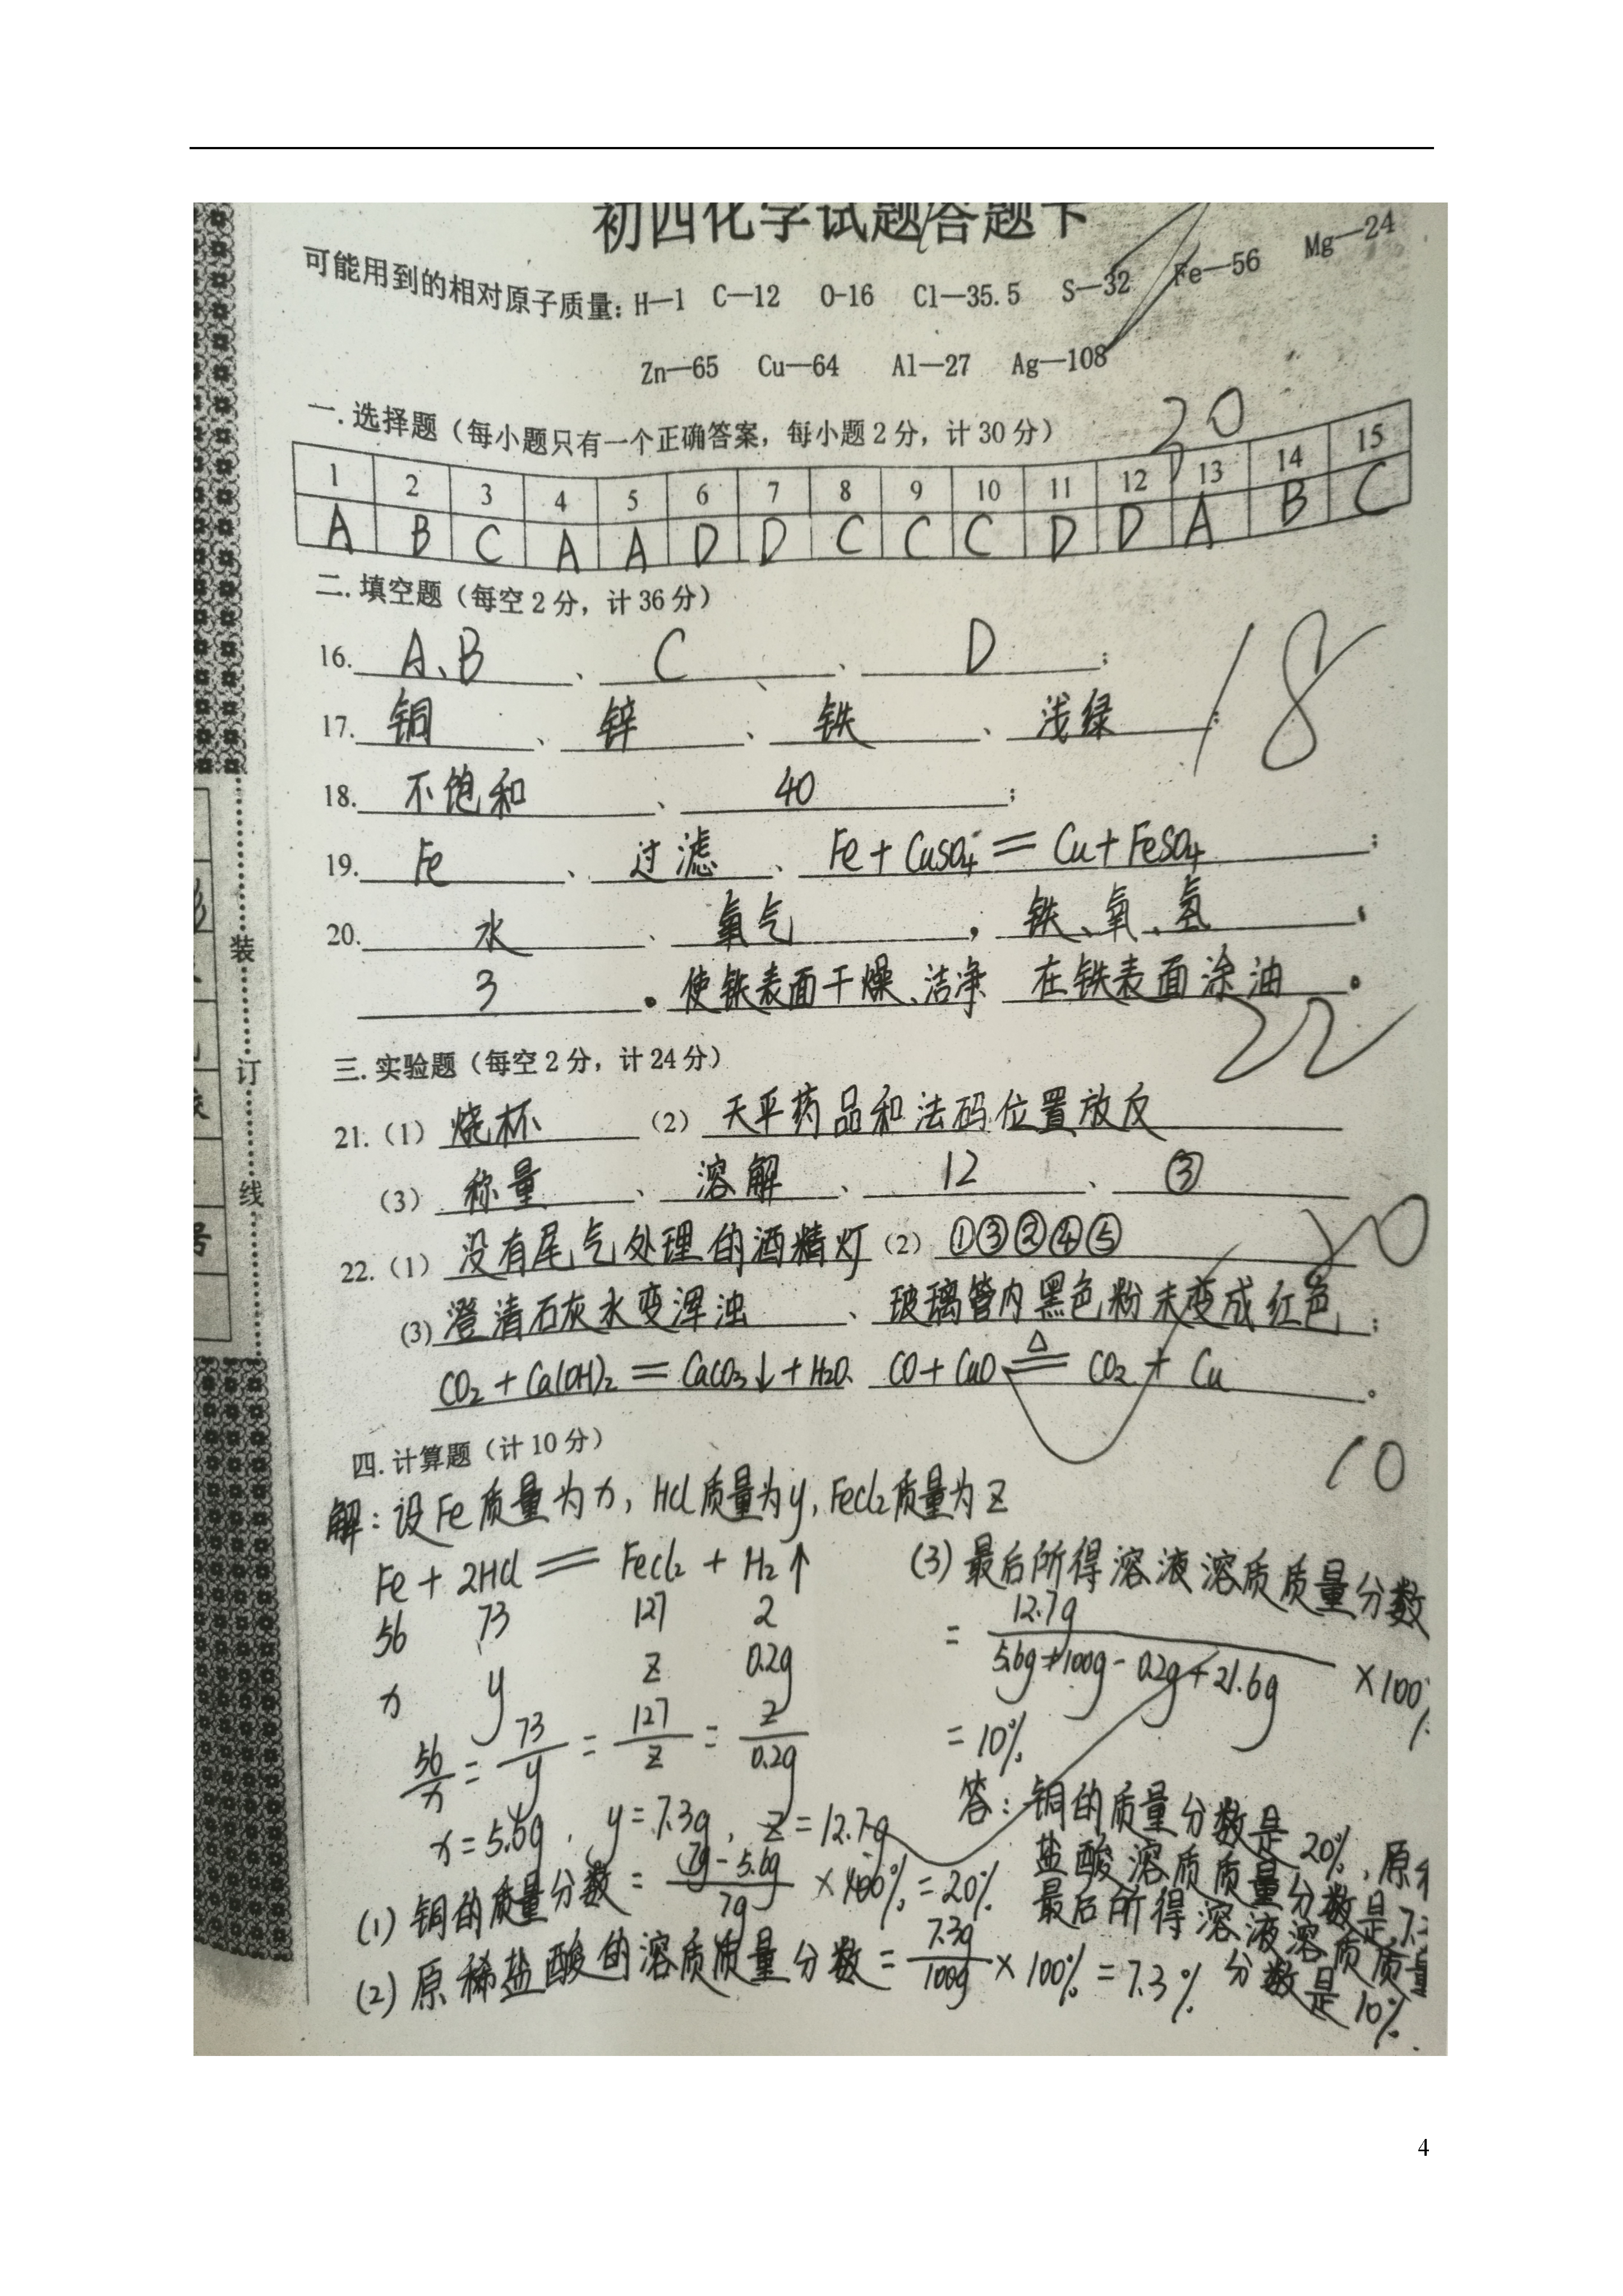 初四化学试题答题卡
可能用到的相对原子质量: H—1 C—12 O-16 Cl—35.5 S—32 Fe—56 Mg—24
Zn—65 Cu—64 Al—27 Ag—108
一.选择题（每小题只有一个正确答案，每小题2分，计30分）
1 2 3 4 5 6 7 8 9 10 11 12 13 14 15
A B C A A D D C C C D D A B C
二.填空题（每空2分，计36分）
16. A、B 、 C 、 D ；
17. 铜 、 锌 、 铁 、 浅绿 ；
18
18. 不饱和 、 40 ；
19. Fe 、 过滤 、 Fe+CuSO4=Cu+FeSO4 ；
20. 水 、 氧气 ， 铁、氧、氢 ；
3 。 使铁表面干燥、洁净 在铁表面涂油 。
22
三.实验题（每空2分，计24分）
21.（1） 烧杯 （2） 天平药品和法码位置放反
（3） 称量 、 溶解 、 12 、 ③
22.（1） 没有尾气处理的酒精灯 （2） ①③②④⑤
(3) 澄清石灰水变浑浊 、 玻璃管内黑色粉末变成红色 ；
CO2+Ca(OH)2=CaCO3↓+H2O、 CO+CuO≜CO2+Cu 。
四.计算题（计10分）
10
解：设Fe质量为x，HCl质量为y，FeCl2质量为z
Fe + 2HCl = FeCl2 + H2↑
56 73 127 2
x y z 0.2g
56/x = 73/y = 127/z = 2/0.2g
x=5.6g, y=7.3g, z=12.7g
(1) 铜的质量分数 = 7g-5.6g/7g ×100%=20%
(2) 原稀盐酸的溶质质量分数 = 7.3g/100g ×100% = 7.3%
(3) 最后所得溶液溶质质量分数
= 12.7g/5.6g+100g-0.2g+21.6g ×100%
=10%
答：铜的质量分数是20%，原
盐酸溶质质量分数是7.
最后所得溶液溶质质量
分数是10%.
装
订
线
号
4